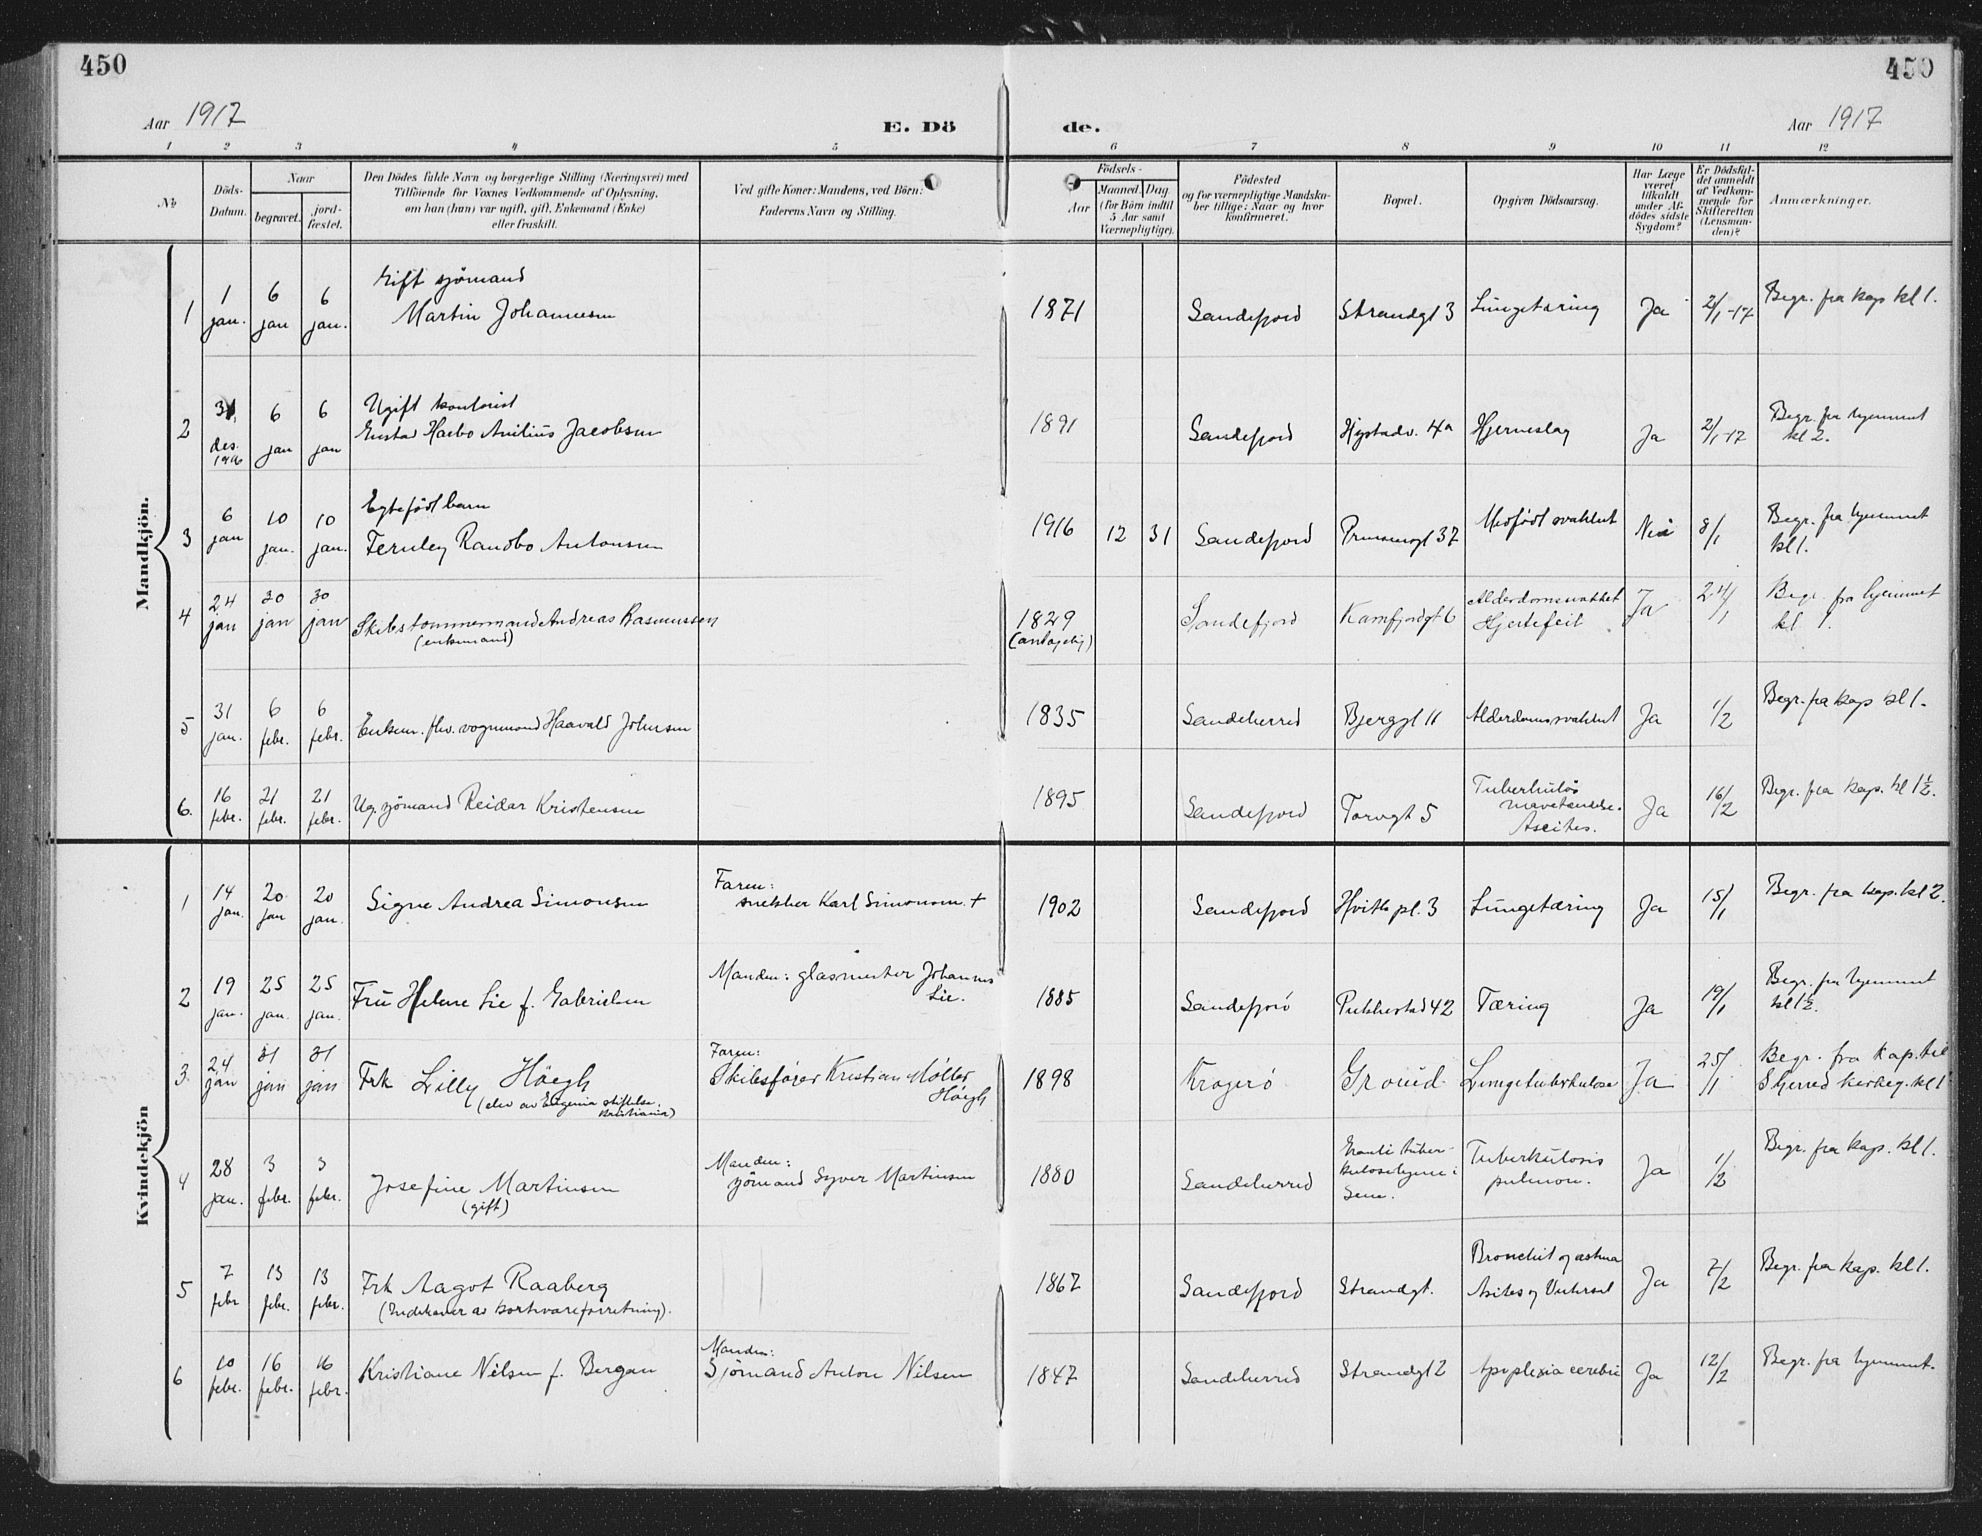 450
450
Aar 1917
E. Dö
de.
Aar 1917
1 2 3 4 5 6 7 8 9 10 11 12
No
Döds-
Datum.
Naar
begravet.
jord-
fæstet.
Den Dödes fulde Navn og borgerlige Stilling (Næringsvei) med
Tilföiende for Voxnes Vedkommende af Oplysning,
om han (hun) var ugift, gift, Enkemand (Enke)
eller fraskilt.
Ved gifte Koner: Mandens, ved Börn:
Faderens Navn og Stilling.
Födsels-
Aar
Maaned. Dag
(for Börn indtil
5 Aar samt
Værnepligtige).
Födested
og for værnepligtige Mandska-
ber tillige: Naar og hvor
konfirmeret.
Bopæl.
Opgiven Dödsaarsag.
Har Læge
været
tilkaldt
under Af-
dödes sidste
Sygdom?
Er Dödsfal-
det anmeldt
af Vedkom-
mende for
Skifteretten
(Lensman-
den)?
Anmærkninger.
Mandkjön.
1
1 jan.
6 jan
6 jan.
Gift sjömand
Martin Johannesen
1871
Sandefjord
Strandgt 3
Lungetæring
Ja
2/1-17
Begr. fra kap kl 1.
2
31 des. 1916
6 jan
6 jan
Ugift kontorist
Gustav Haebo Anilius Jacobsen
1891
Sandefjord
Hystadv. 4a
Hjerneslag
Ja
2/1-17
Begr. fra hjemmet
kl 2.
3
6 jan
10 jan.
10 jan.
Egtefödt barn
Fernley Randbo Antonsen
1916
12
31
Sandefjord
Prinsensgt 37
Medfödt svakhet
Nei
8/1
Begr. fra hjemmet
kl 1.
4
24 jan
30 jan
30 jan
Skibstömmermand Andreas Rasmussen
(enkemand)
1829
(antagelig)
Sandefjord
Kamfjordgt 6
Alderdomssvakhet
Hjertefeil
Ja
24/1
Begr. fra hjemmet
kl 1.
5
31 jan.
6 febr.
6 febr.
Enkem. fhv. vognmand Haavald Johnsen
1835
Sandeherred
Bjerggt 11
Alderdomssvakhet
Ja
1/2
Begr. fra kap kl 1.
6.
16 febr.
21 febr.
21 febr.
Ug. sjömand Reidar Kristensen
1895
Sandefjord
Torvgt 5
Tuberkulös
mavebetændelse.
Ascites.
Ja
16/2
Begr. fra kap. kl 1½.
Kvindekjön
1
14 jan.
20 jan
20 jan.
Signe Andrea Simonsen
Faren:
snekker Karl Simonsen. +
1902
Sandefjord
Hvitls pl. 3
Lungetæring
Ja
15/1
Begr. fra kap. kl 2.
2
19 jan.
25 jan.
25 jan.
Fru Helene Lie f. Gabrielsen
Manden: glasmester Johannes
Lie.
1885
Sandefjord
Pukkestad 42
Tæring
Ja
19/1
Begr. fra hjemmet
kl 1½.
3.
24 jan
31 jan
31 jan
Frk Lilly Höegh
(elev av Eugenia stiftelse.
Kristiania)
Faren:
Skibsförer Kristian Möller
Höegh
1898
Kragerö
Groüd
Lungetuberkulose
Ja
25/1
Begr. fra kap. til
Skjerred kirkeg. kl 1
4
28 jan.
3 febr.
3 febr.
Josefine Martinsen
(gift)
Manden:
sjömand Syver Martinsen
1880
Sandeherred
Granli tuber-
kulosehjem i
Sem.
Tuberkulosis
pulmon.
Ja
1/2
Begr. fra kap. kl 1.
5
7 febr
13 febr.
13 febr.
Frk Aagot Raaberg
(Indehaver av kortvareforretning).
1867
Sandefjord
Strandgt.
Bronchit og astma
Ja
7/2
Begr. fra kap. kl 1.
6
10 febr.
16 febr.
16 febr.
Kristiane Nilsen f. Bergan
Manden:
Sjömand Anton Nilsen
1847
Sandeherred
Strandgt 2
Apoplexia cerebri
Ja
12/2
Begr. fra hjemmet.